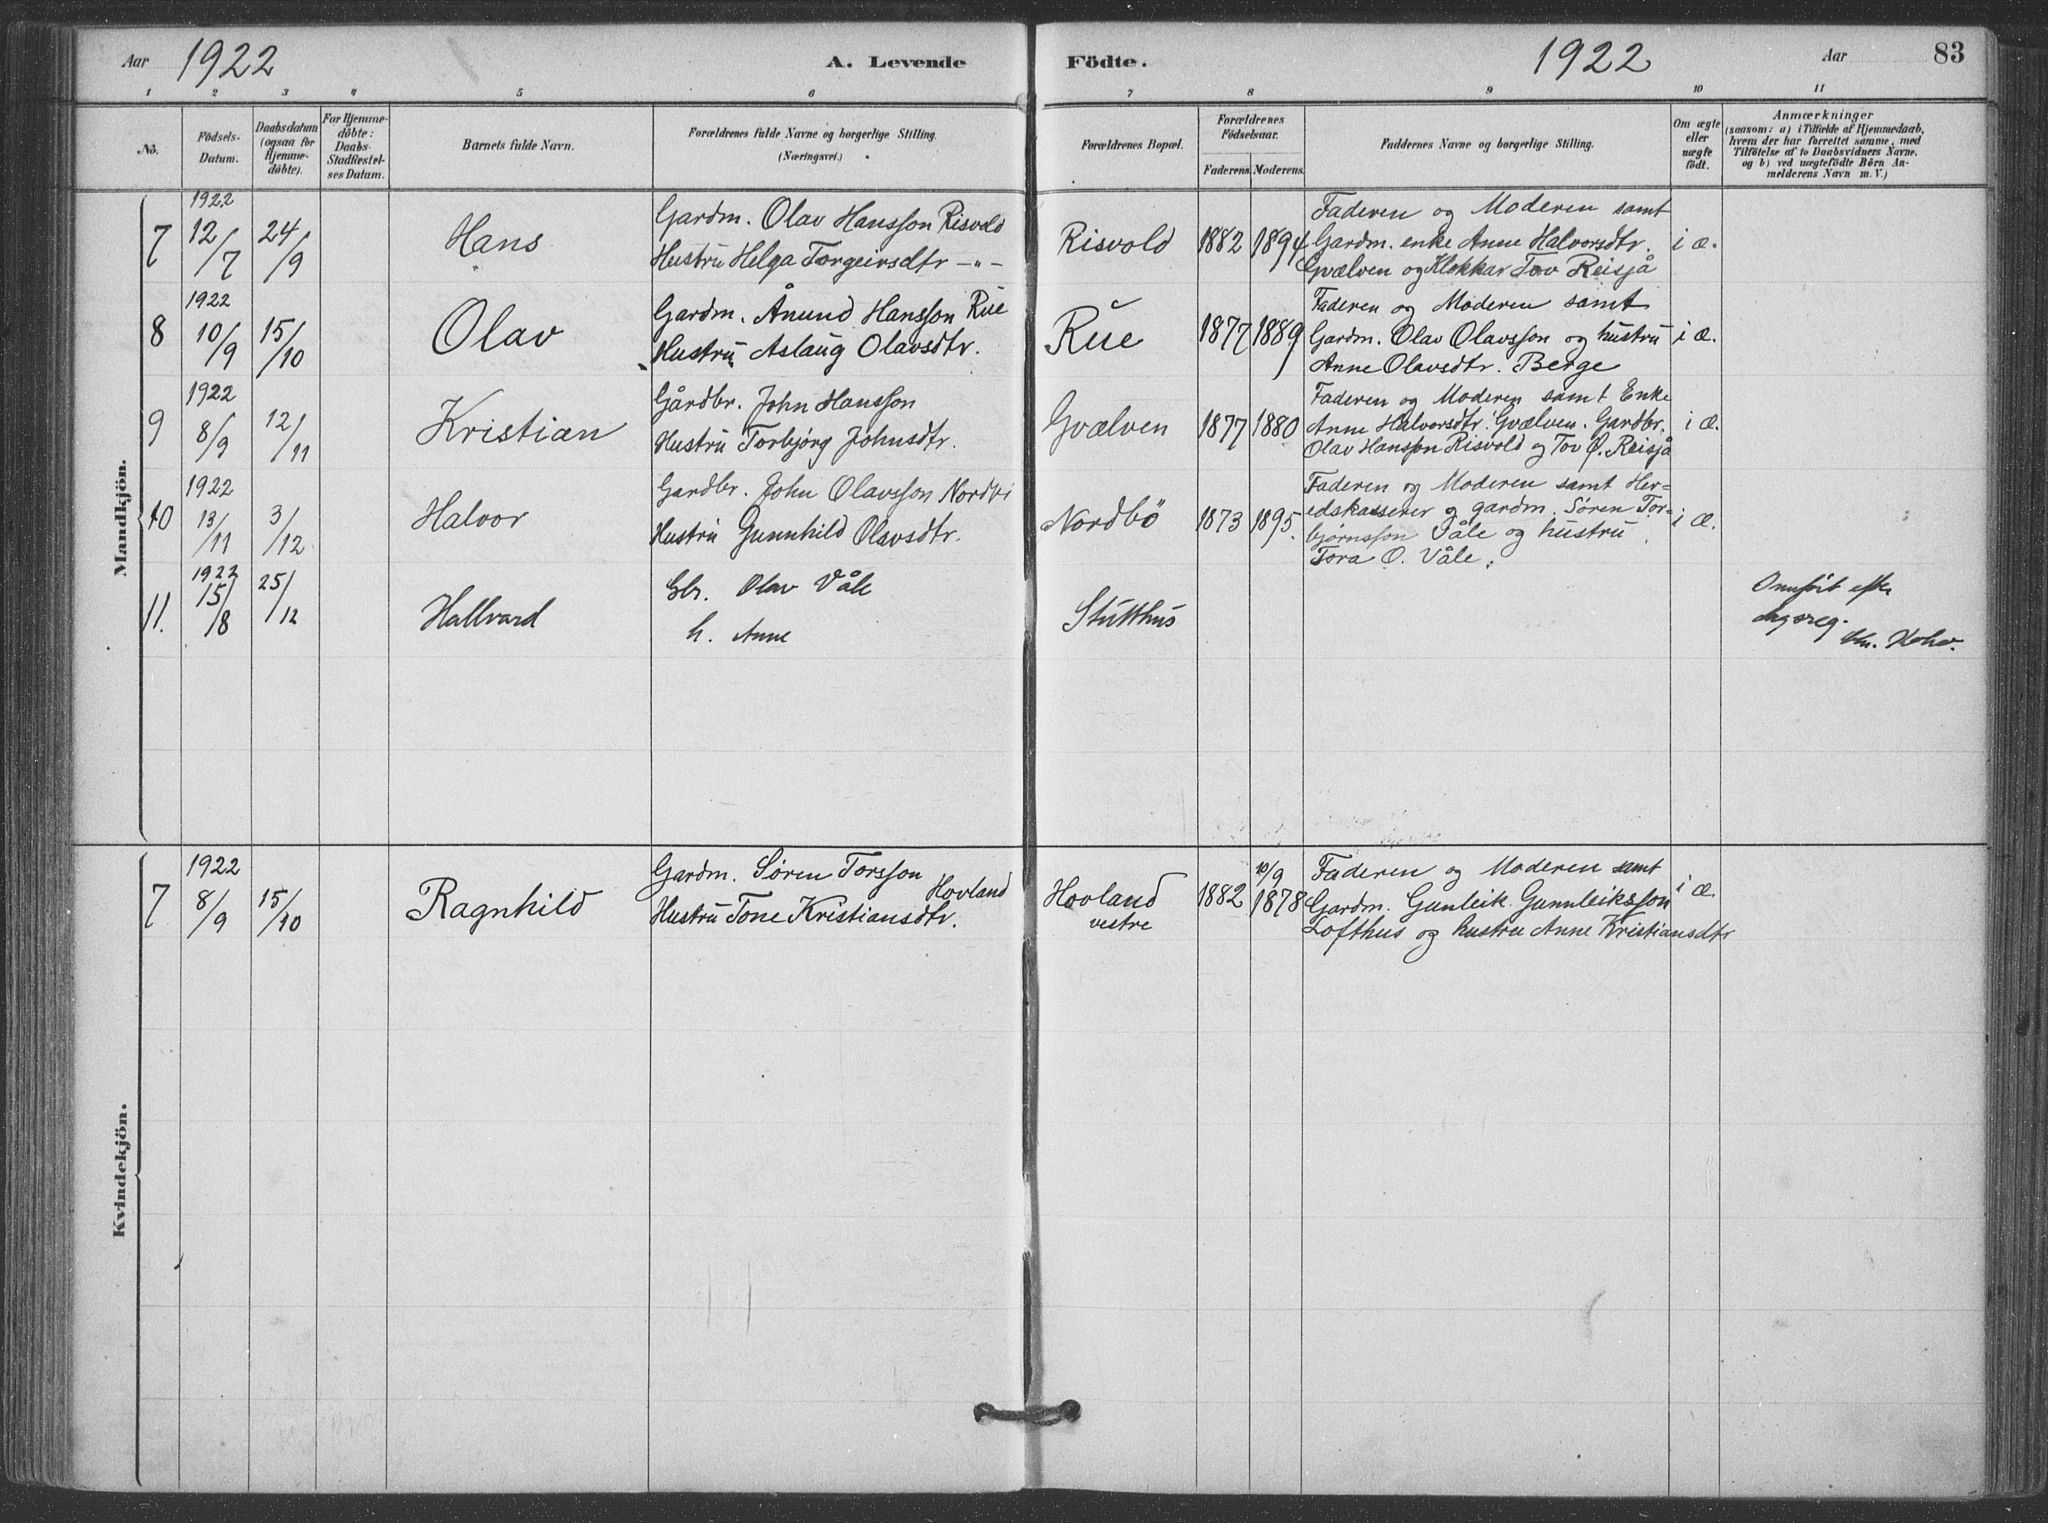 Aar 1922 A. Levende Födte. 1922 Aar 83
1 2 3 4 5 6 7 8 9 10 11
No.
Födsels-Datum.
Daabsdatum (ogsaa for Hjemme-døbte).
For Hjemme-døbte: Daabs-Stadfæstel-ses Datum.
Barnets fulde Navn.
Forældrenes fulde Navne og borgerlige Stilling.
(Næringsvei.)
Forældrenes Bopæl.
Forældrenes Födselsaar.
Faderens Moderens
Faddernes Navne og borgerlige Stilling.
Om ægte eller uægte født.
Anmærkninger
(saasom: a) i Tilfælde af Hjemmedaab,
hvem der har forrettet samme, med
Tilføielse af to Daabsvidners Navne.
og b) ved uægtefödte Börn An-
melderens Navn m. V.)
Mandkjön.
7 1922 12/7 24/9 Hans
Gardm. Olav Hansson Risvold
Hustru Helga Torgeirsdtr –"–
Risvold 1882 1894
Faderen og Moderen samt
Gardm. enke Anne Halvorsdtr.
Gvælven og Klokkar Tov Reisjå
i æ.
8 1922 10/9 15/10 Olav
Gardm. Ånund Hansson Rue
Hustru Aslaug Olavsdtr.
Rue 1877 1889
Faderen og Moderen samt
Gardm. Olav Olavsson og hustru
Anne Olavsdtr. Berge
i æ.
9 1922 8/9 12/11 Kristian
Gårdbr. John Hansson
Hustru Torbjørg Johnsdtr.
Gvælven 1877 1880
Faderen og Moderen samt Enke
Anne Halvorsdtr. Gvælven. Gardbr.
Olav Hansson Risvold og Tov Ø. Reisjå
i æ.
10 1922 13/11 3/12 Halvor
Gardbr. John Olavsson Nordbi
Hustru Gunnhild Olavsdtr.
Nordbö 1873 1895.
Faderen og Moderen samt Her-
edskasserer og gardm. Søren Tor-
bjørnsson Våle og hustru
Tora O. Våle.
i æ.
11. 1922 15/8 25/12 Hallvard
Gbr. Olav Våle
h. Anne
Stutthus
Kvindekjön.
7 1922 8/9 15/10 Ragnhild
Gardm. Søren Torsson
Hovland
Hustru Tone Kristiansdtr.
Hovland
vestre
1882 10/9 1878
Faderen og Moderen samt
Gardm. Gunleik Gunnleiksson
Lofthus og hustru Anne Kristiansdtr
i æ.